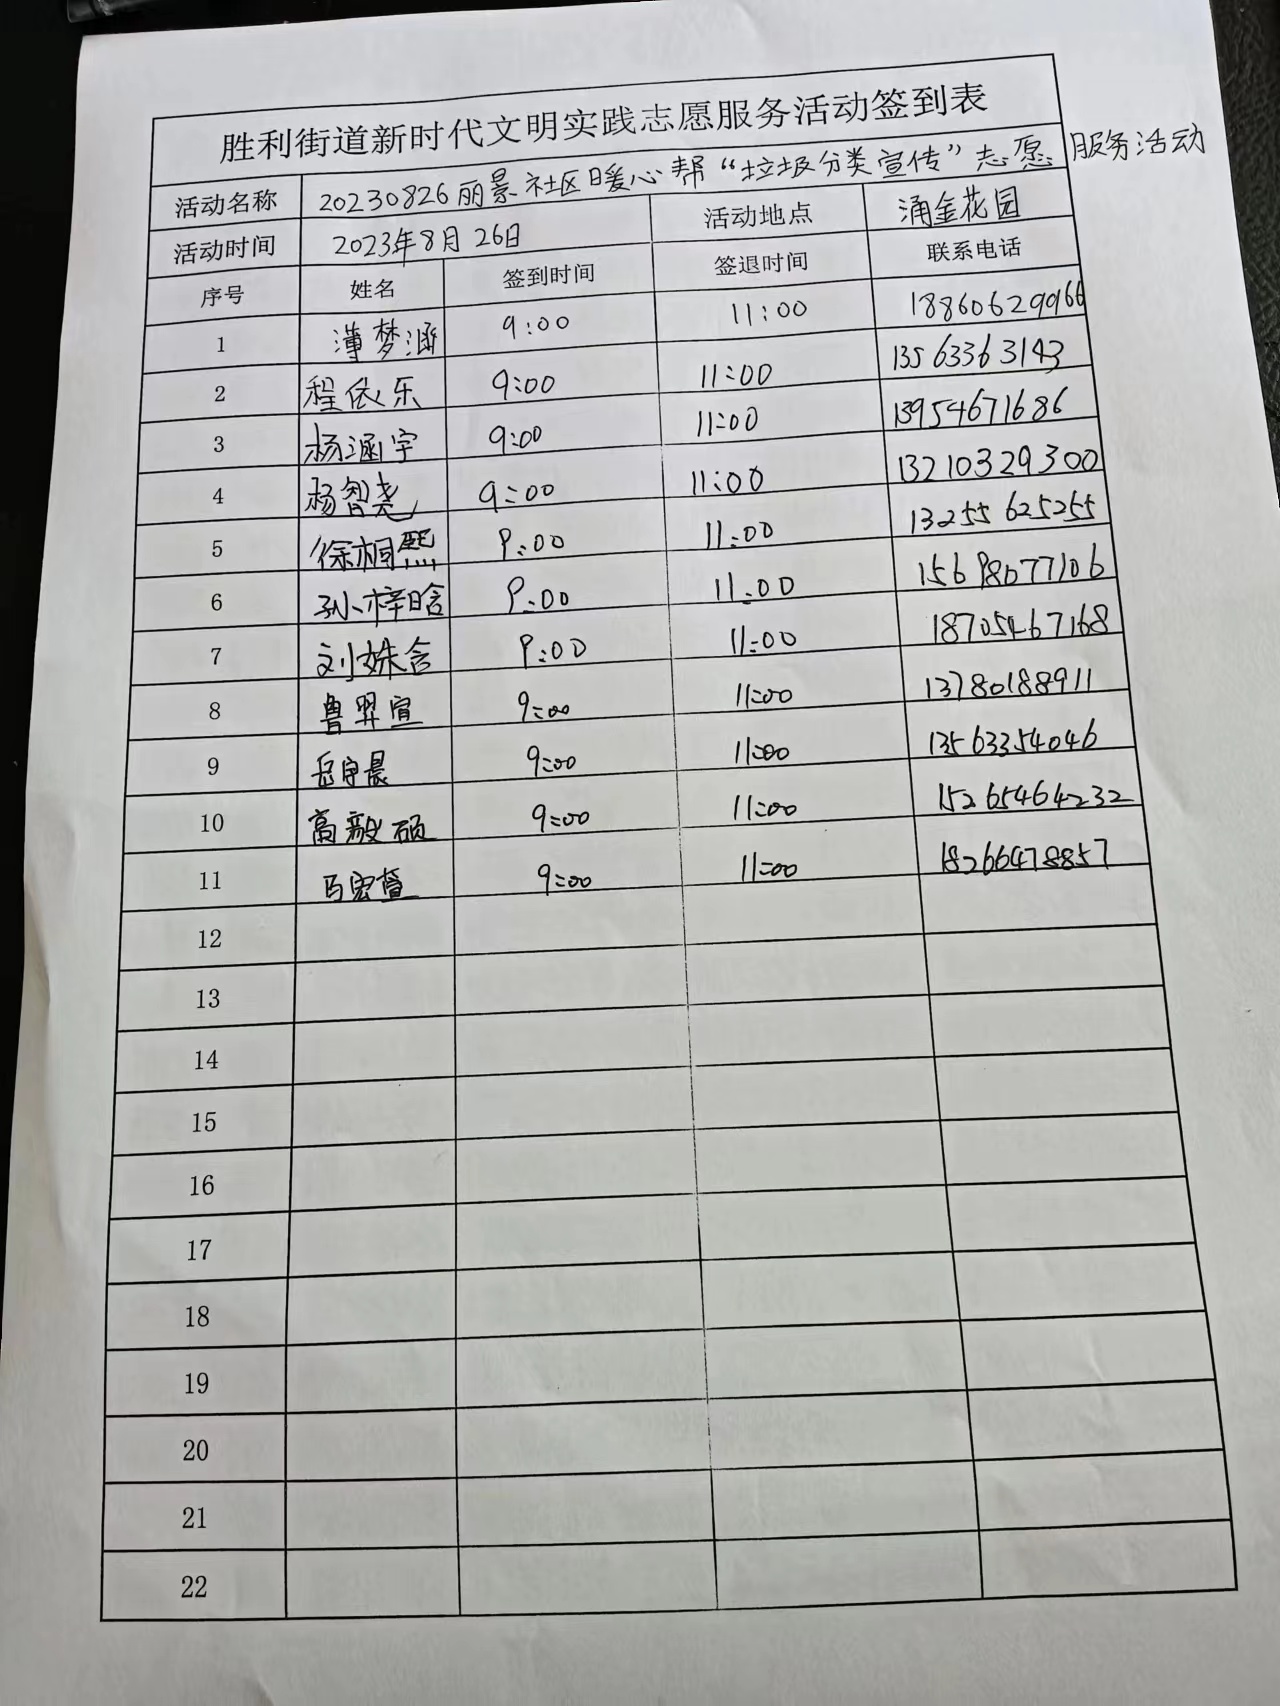 胜利街道新时代文明实践志愿服务活动签到表
活动名称 20230826丽景社区暖心帮“垃圾分类宣传”志愿服务活动
活动时间 2023年8月26日 活动地点 涌金花园
序号 姓名 签到时间 签退时间 联系电话
1 薄梦涵 9:00 11:00 18860629966
2 程依乐 9:00 11:00 13563363143
3 杨涵宇 9:00 11:00 13954671686
4 杨智尧 9:00 11:00 13210329300
5 徐桐熙 9:00 11:00 13255625255
6 孙梓晗 9:00 11:00 15698077106
7 刘姝含 9:00 11:00 18705467168
8 鲁羿宣 9:00 11:00 13780188911
9 岳宇晨 9:00 11:00 13563354046
10 高毅硕 9:00 11:00 15265464232
11 9:00 11:00 18266478857
12
13
14
15
16
17
18
19
20
21
22